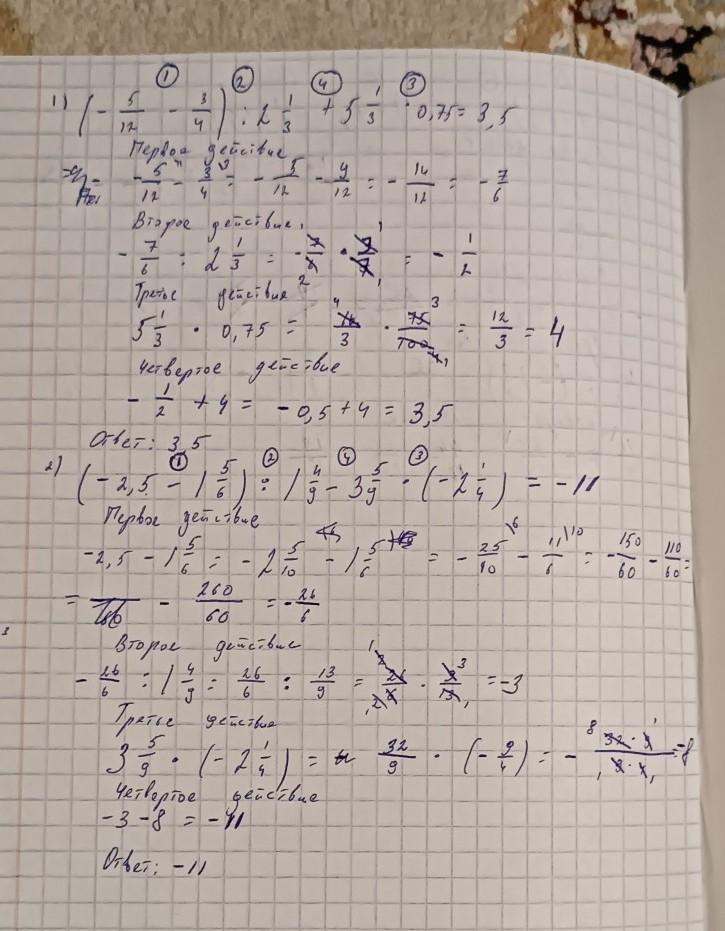 ① ② ④ ③
1) (- 5/12 - 3/4) : 2 1/3 + 5 1/3 · 0,75 = 3,5
Первое действие
- 5/12 - 3/4 = - 5/12 - 9/12 = - 14/12 = - 7/6
Второе действие
- 7/6 : 2 1/3 = - 7/6 · 3/7 = - 1/2
Третье действие
5 1/3 · 0,75 = 16/3 · 75/100 = 12/3 = 4
Четвертое действие
- 1/2 + 4 = -0,5 + 4 = 3,5
Ответ: 3,5
① ② ④ ③
2) (-2,5 - 1 5/6) : 1 4/9 - 3 5/9 · (-2 1/4) = -11
Первое действие
-2,5 - 1 5/6 = -2 5/10 - 1 5/6 = - 25/10 \6 - 11/6 \10 = - 150/60 - 110/60 =
= - 260/60 = - 26/6
Второе действие
- 26/6 : 1 4/9 = 26/6 : 13/9 = 26/6 · 9/13 = -3
Третье действие
3 5/9 · (-2 1/4) = 32/9 · (- 9/4) = - 32·9/9·4 = -8
Четвертое действие
-3 - 8 = -11
Ответ: -11